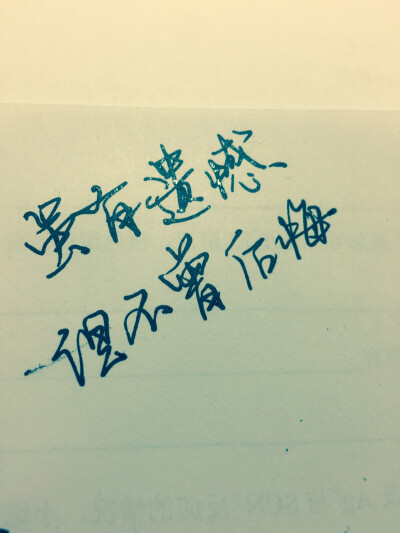 虽有遗憾
但不曾后悔